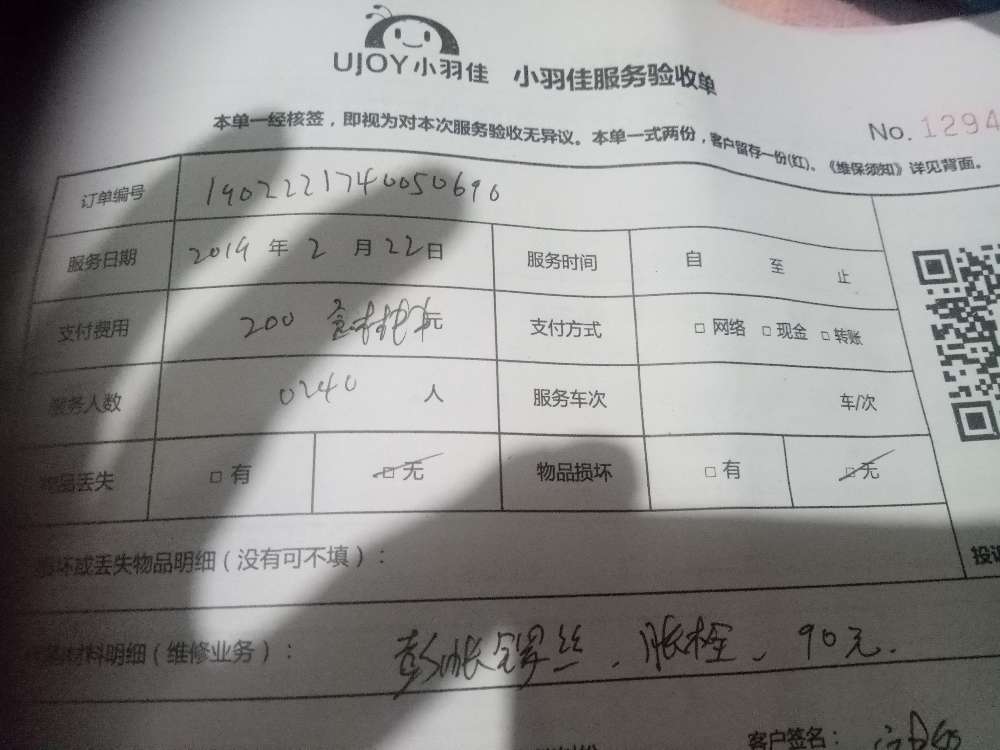 UJOY小羽佳 小羽佳服务验收单
本单一经核签，即视为对本次服务验收无异议。本单一式两份，客户留存一份(红)。《维保须知》详见背面。
No. 1294
订单编号 1902221740050690
服务日期 2019 年 2 月 22 日 服务时间 自 至 止
支付费用 200 元 支付方式 □ 网络 □ 现金 □ 转账
服务人数 0240 人 服务车次 车/次
品丢失 □ 有 □ 无 物品损坏 □ 有 □ 无
损坏或丢失物品明细（没有可不填）：
投诉
材料明细（维修业务）： 膨胀锣丝、胀栓、90元.
客户签名：